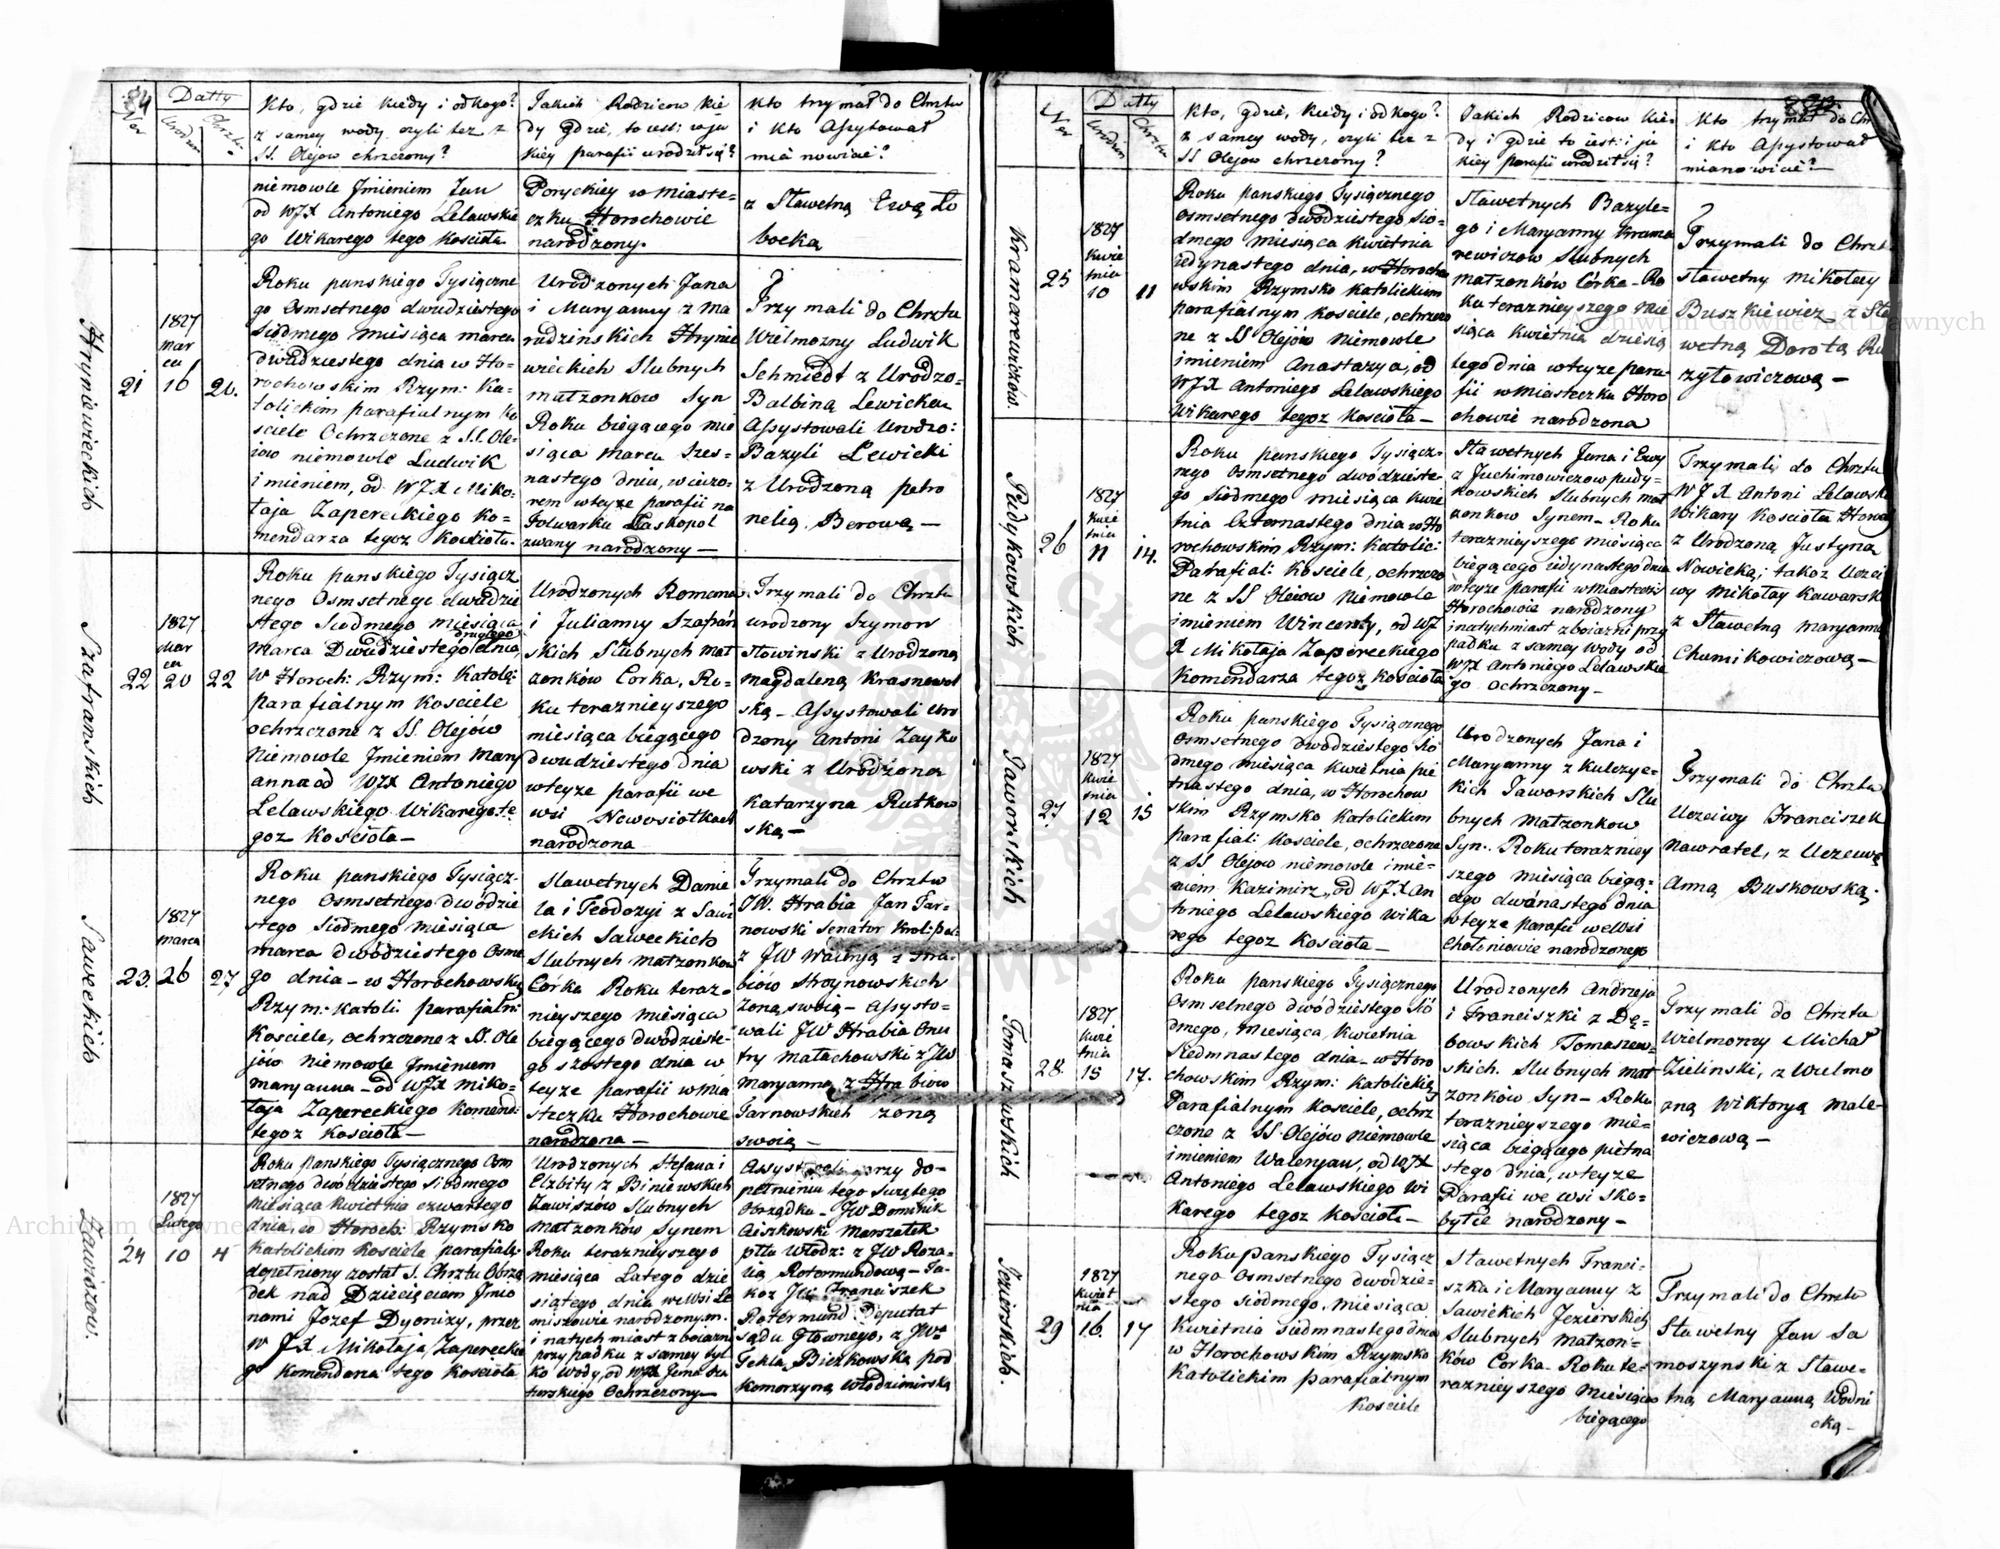 84
Datty
Ner
Urodze:
Chrztu
Kto, gdzie kiedy i od kogo?
z samey wody czyli też z
SS. Olejow chrzczony?
Jakich Rodzicow kie-
dy gdzie, to iest: w ja-
kiey parafii urodził się?
Kto trzymał do Chrztu
i Kto Assystował
mianowicie?
niemowle Jmieniem Jan
od WJX Antoniego Lelawskie
go Wikarego tego Kościoła
Poryckiey w Miaste-
czku Horochowie
narodzony.
z Sławetną Ewą Ło
bocką
Hryniewieckich
21
1827
mar
ca
16
20.
Roku panskiego Tysiączne
go Osmsetnego dwudziestego
siodmego miesiąca marca
dwudziestego dnia w Ho-
rochowskim Rzym: Ka-
tolickim parafialnym Ko
ściele Ochrzczone z S.S. Ole-
iow niemowle Ludwik
imieniem, od WJX Miko-
łaja Zapereckiego Ko-
mendarza tegoz Kościoła.
Urodzonych Jana
i Maryanny z Ma
radzinskich Hrynie
wieckich Slubnych
matzonkow Syn
Roku biegącego mie
siąca Marca Szes-
nastego dnia, wieczo-
rem wteyze parafii na
Folwarku Laskopol
zwany narodzony —
Trzymali do Chrztu
Wielmozny Ludwik
Schmiedt z Urodzo-
Balbiną Lewicką
Assystowali Urodzo:
Bazyli Lewicki
z Urodzoną petro
nelią Berową —
Szafranskich
22
1827
Mar
ca
20
22
Roku panskiego Tysiącz
nego Osmsetnego dwudzie
stego Siodmego miesiąca
drugiego
marca Dwudziestego dnia
w Horoch: Rzym: Katoli:
parafialnym Kosciele
ochrzczone z SS. Olejów
Niemowle Jmieniem Mary
anna od WJX Antoniego
Lelawskiego Wikarego te
goz Kościoła —
Urodzonych Romana
i Julianny Szafrań
skich Slubnych mat
zonków Corka, Ro-
ku terazniejszego
miesiąca biegącego
dwudziestego dnia
wteyze parafii we
wsi Nowosiołkach
narodzona
Trzymali do Chrztu
urodzony Szymon
Słowinski z Urodzoną
magdaleną Krasnowol
ską — Assystowali Uro
dzony Antoni Zayko
wski z Urodzoną
Katarzyna Rutkow
ską —
Saweckich
23.
1827
marca
26
27
Roku panskiego Tysiącz-
nego Osmsetnego dwódzie
stego Siodmego miesiąca
marca dwódziestego Osme
go dnia — w Horochowskim
Rzym: Katoli parafialni
Kościele, ochrzczone z S. Ole
jów Niemowle Jmieniem
maryanna — od WJX miko-
łaja Zapereckiego Komend:
tegoz Kościoła —
Sławetnych Danie
la i Teodozyi z Sawi
ckich Saweckich
Slubnych matzonków
Córka Roku teraz-
nieyszego miesiąca
biegącego dwódzieste-
go szostego dnia w
teyze parafii w mia
steczku Horochowie
narodzona —
Trzymali do Chrztu
JW. Hrabia Jan Tar-
nowski Senator Krol: pol:
z JW Waleryą z Hra-
biów Stroynowskich
żoną swoią — Assysto-
wali JW Hrabia Onu
fry Małachowski z JW
Maryanną z Hrabiow
Tarnowskich zoną
swoią —
Zawiszow.
24
1827
Lutego
10
4
Roku panskiego Tysiącznego Osm
setnego dwódziestego siodmego
miesiąca kwietnia czwartego
dnia, w Horoch: Rzymsko
Katolickim Kosciele parafial:
dopełniony został S. Chrztu Obrzą
dek nad Dziecięciem Jmio
nami Jozef Dyonizy, przez
WJX Mikołaja Zaperecki
go Komendarza tego Kościoła
Urodzonych Stefana i
Elzbity z Biniewskich
Zawiszów Slubnych
Matzonków Synem
Roku teraznieyszego
miesiąca Lutego dzie
siątego dnia we Wsi Le
miszowie narodzonym.
i natychmiast z boiazni
przypadku z samey tyl
ko Wody, od WJX
Ochrzczony —
przy do-
pełnieniu tego Swiętego
Obrządku — JW Dominik
Marszałek
pttu Włodz: z JW Roza-
lią Rotermundową — Ta-
koz JW Franciszek
Rotermund Deputat
Sądu Głownego, z JW
Teklą Bierzkowską pod
komorzyną Włodzimirską
Ner
Datty
Urodzin
Chrztu
Kto, gdzie, kiedy i od kogo?
z samey wody, czyli też z
SS Olejow chrzczony?
Jakich Rodzicow kie-
dy i gdzie to iest: i ja
kiey parafii urodził się?
Kto trzymał do Chr
i Kto Assystował
mianowicie?
Kramarewiczów.
25
1827
kwie
tnia
10
11
Roku panskiego Tysiącznego
osmsetnego dwódziestego sio-
dmego miesiąca kwietnia
iedynastego dnia, w Horocho
wskim Rzymsko Katolickim
parafialnym Kosciele, ochrzczo
ne z SS Olejów Niemowle
imieniem Anastazya, od
WJX Antoniego Lelawskiego
Wikarego tegoz Kościoła —
Sławetnych Bazyle-
go i Maryanny Krama
rewiczow Slubnych
matzonków Córka — Ro
ku teraznieyszego mie
siąca kwietnia dziesią
tego dnia wteyze para-
fii w Miasteczku Horo
chowie narodzona
Trzymali do Chrztu
Sławetny Mikołay
Buszkiewicz z Sła
wetną Dorotą Ru
zyłowiczową —
Pudykowskich
26
1827
kwie
tnia
11
14.
Roku panskiego Tysiącz-
nego Osmsetnego dwódzieste-
go siodmego miesiąca kwie
tnia Czternastego dnia w Ho
rochowskim Rzym: Katolic:
Parafial: Kosciele, ochrzczo
ne z SS Olejow Niemowle
imieniem Wincenty, od WJ
X Mikołaja Zapereckiego
Komendarza tegoz Kościoła
Sławetnych Jana i Ewy
z Juchimowiczow pudy-
kowskich Slubnych mat
zonkow Synem — Roku
teraznieyszego miesiąca
biegącego iedynastego dnia
wteyze parafii w miasteczk
Horochowie narodzony
i natychmiast z boiazni przy
padku z samey wody od
WJX Antoniego Lelawskie
go ochrzczony —
Trzymali do Chrztu
WJX Antoni Lelawski
Wikary Kościoła Horoch
z Urodzoną Justyną
Nowicką; takoz Uczci
wy Mikołay Kawarsk
z Sławetną Maryanną
Chumikowiczową —
Jaworskich
27
1827
kwie
tnia
12
15
Roku panskiego Tysiącznego
Osmsetnego dwódziestego sio
dmego miesiąca kwietnia pie
tnastego dnia, w Horochow
skim Rzymsko Katolickim
parafial: Kosciele, ochrzczone
z SS Olejow niemowle imie-
niem Kazimirz, od WJX An
toniego Lelawskiego Wika
rego tegoz Kościoła —
Urodzonych Jana i
Maryanny z Kulczyc-
kich Jaworskich Slu
bnych Matzonkow
Syn. Roku terazniey
szego miesiąca biegą-
cego dwónastego dnia
wteyze parafii we Wsi
Chołoniowie narodzonego
Trzymali do Chrztu
Uczciwy Franciszek
Nawratel, z Uczciwą
Anną Buskowską.
Tomaszewskich
28
1827
kwie
tnia
15
17.
Roku panskiego Tysiącznego
Osmsetnego dwódziestego Sió
dmego, miesiąca, kwietnia
Siedmnastego dnia — w Horo
chowskim Rzym: Katolickim
Parafialnym Kosciele, ochrz
czone z SS Olejów Niemowle
imieniem Waleryan, od WJX
Antoniego Lelawskiego Wi
karego tegoz Kościoła —
Urodzonych Andrzeja
i Franciszki z Dę-
bowskich Tomaszew-
skich Slubnych mat
zonków Syn — Roku
teraznieyszego mie-
siąca biegącego piętna
stego dnia, wteyze
Parafii we wsi Sko-
byłce narodzony —
Trzymali do Chrztu
Wielmozny Michał
Zielinski, z Wielmo
zną Wiktoryą Male-
wiczową —
Jezierskich.
29
1827
kwiet
nia
16.
17
Roku panskiego Tysiącz
nego Osmsetnego dwódzie-
stego siódmego, miesiąca
kwietnia siedmnastego dnia
w Horochowskim Rzymsko
Katolickim parafialnym
Kosciele
Sławetnych Franci-
szka i Maryanny z
Sawickich Jezierskich
Slubnych Matzon-
ków Corka — Roku te-
raznieyszego miesiąca
biegącego
Trzymali do Chrztu
Sławetny Jan Sa
moszynski z Sławe-
tną Maryanną Wodni
cką —
Archiwum Główne Akt Dawnych
Archiwum Główne Akt Dawnych
ARCHIWUM GŁÓWNE AKT DAWNYCH